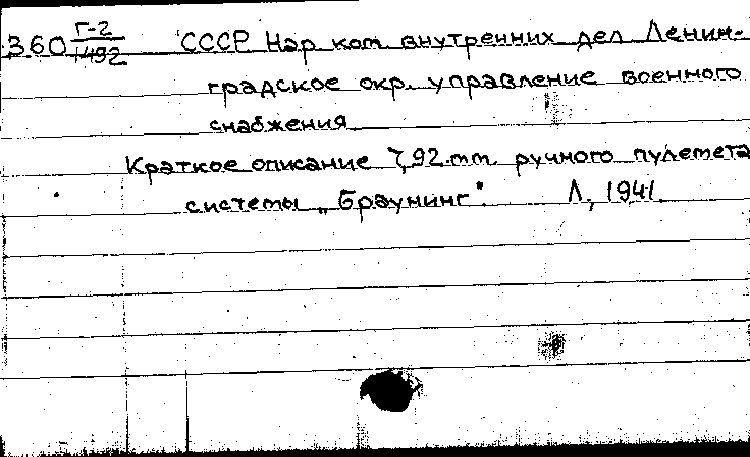 360 Г-2/1492 СССР Нар ком. внутренних дел Ленин-
градское окр. управление военного
снабжения
Краткое описание 7,92 mm. ручного пулемета
системы „Браунинг". Л, 1941